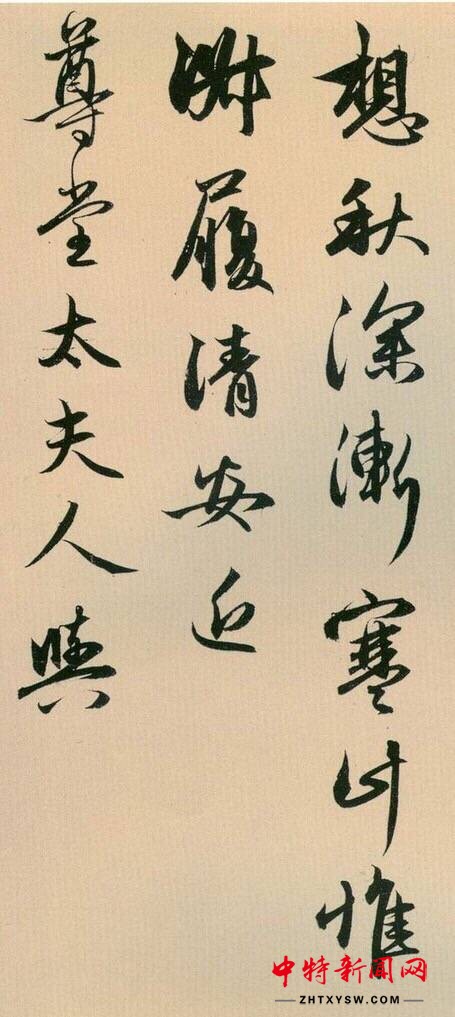 想秋深漸寒計惟
履清安近
尊堂太夫人與
中特新闻网
ZHTXYSW.COM